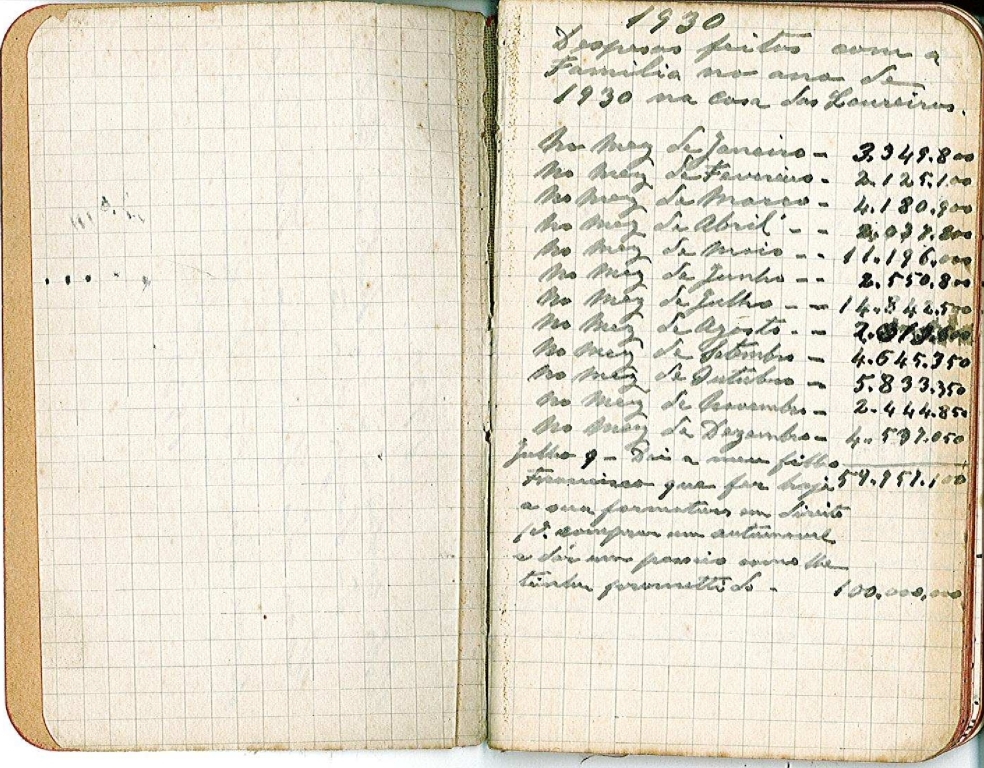 1930
Despesas feitas com a
Familia no ano de
1930 na casa dos Loureiros.
No mez de Janeiro - 3.349.800
No mez de Fevereiro - 2.125.100
No mez de Março - 4.180.900
No mez de Abril - - 2.037.800
No mez de Maio - - 11.196.000
No mez de Junho - - 2.550.800
No mez de Julho - - 14.842.500
No mez de Agosto - -
No mez de Setembro - 4.645.350
No mez de Outubro - 5.833.350
No mez de Novembro - 2.444.850
No mez de Dezembro - 4.597.050
Julho 9 - Dei a meu filho
Francisco que fez hoje
a sua formatura em Direito
pª comprar um automovel
e dár um passeio como lhe
tinha promettido - 100.000,000